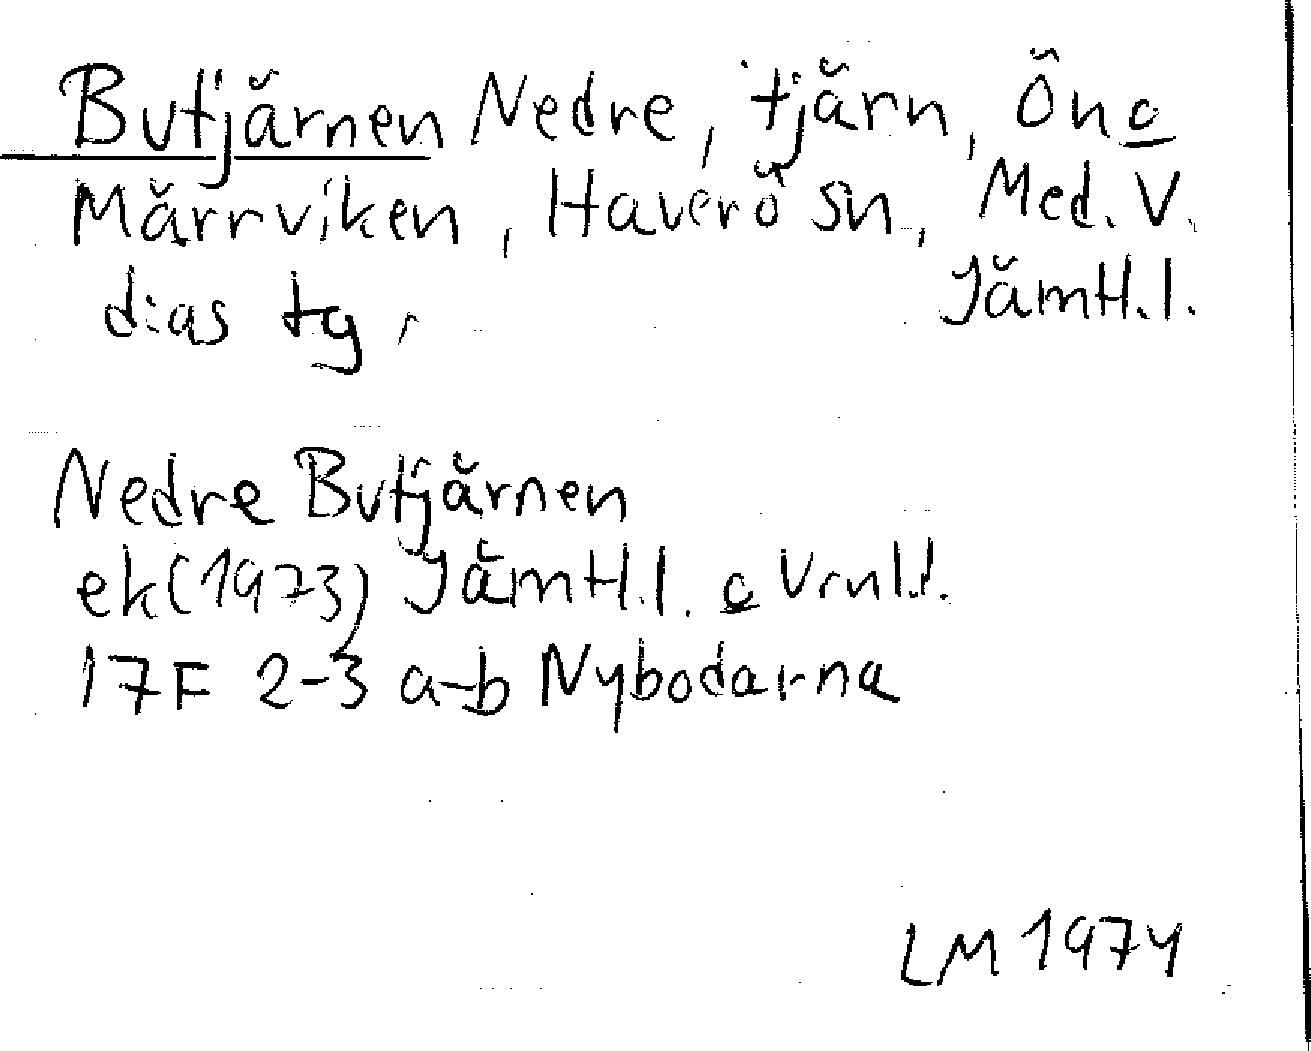 Butjärnen Nedre, tjärn, Ön o
Märrviken, Haverö sn, Med. V.
dias tg, Jämtl.l.
Nedre Butjärnen
ek(1973) Jämtl.l. o Vrnl.l.
17F 2-3 a-b Nybodarna
LM 1974